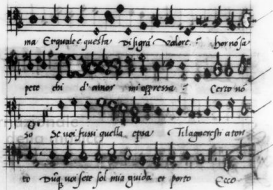 ma Eguale e questa di sigra valore? hor no sa
pete chi d'amor m'oppressa? Certo nō
so Se voi fussi quella, epua Ti lagneresti a tort
to Dūq̄ voi sete sol mia guida et porto Ecco